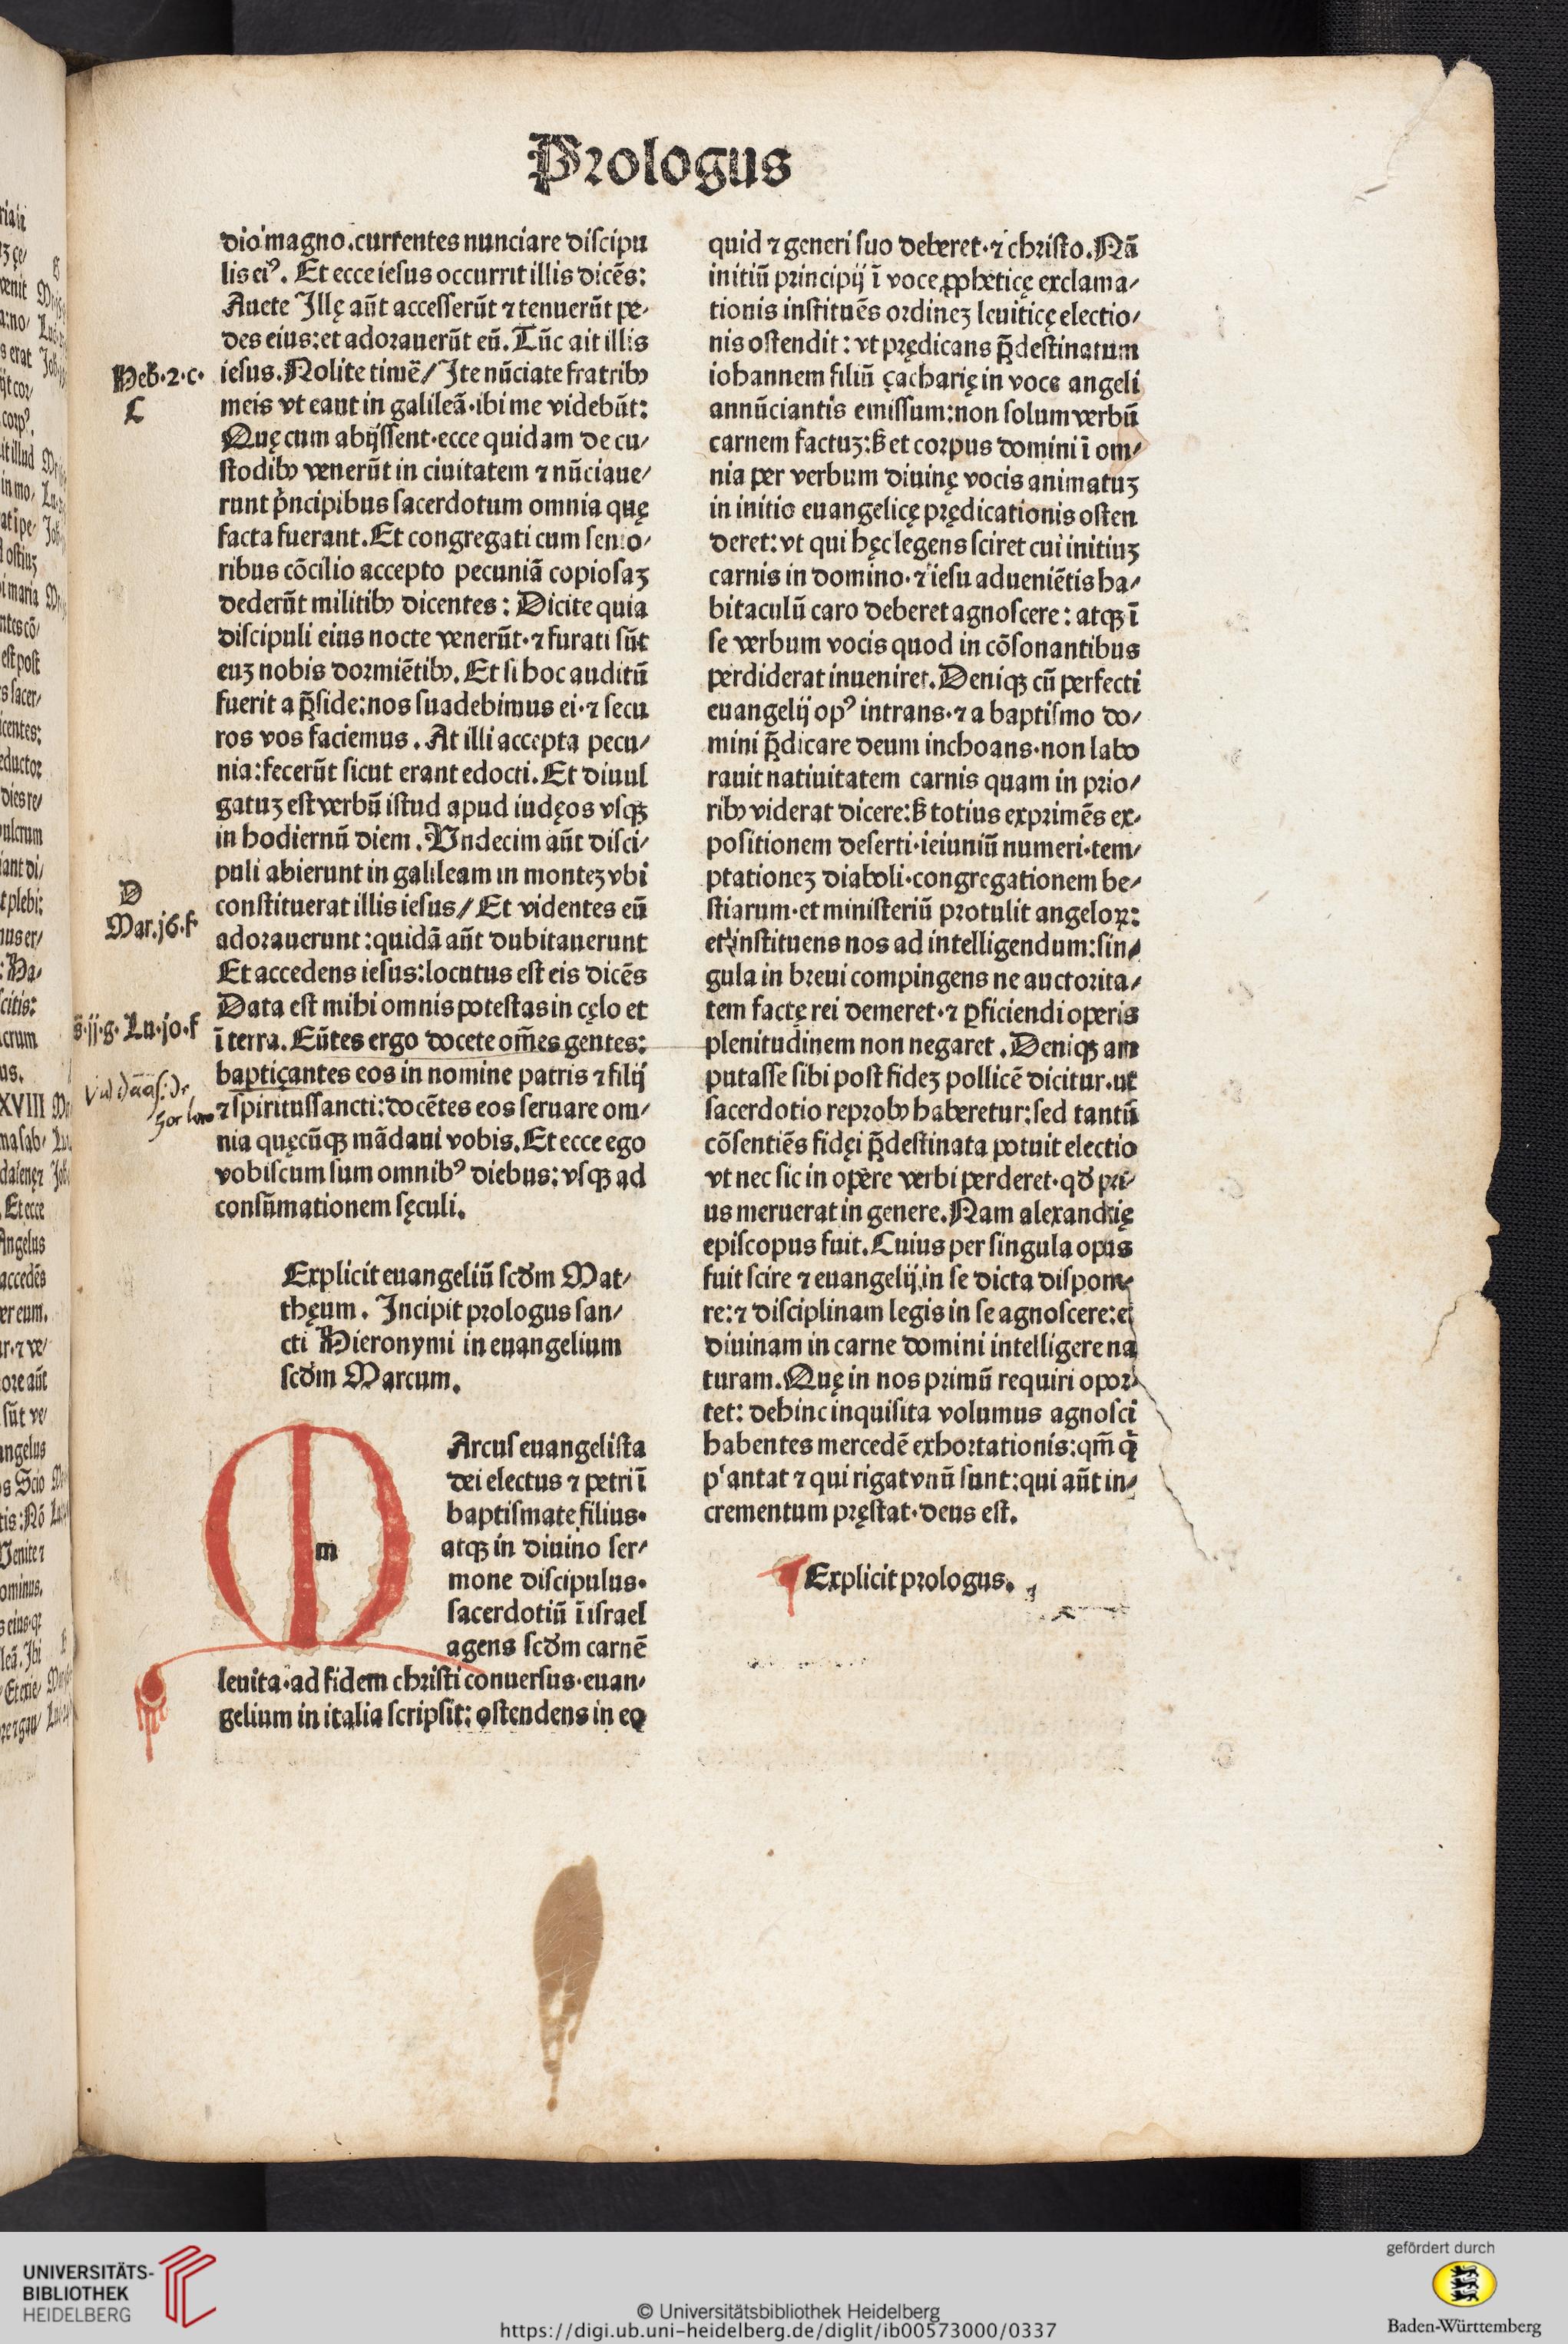 Prologus
dio magno.currentes nunciare discipu
lis eiꝰ. Et ecce iesus occurrit illis dicẽs:
Auete Illę aũt accesserũt ⁊ tenuerũt pe-
des eius:et adorauerũt eũ.Tũc ait illis
Heb.2.c.
iesus.Nolite timẽ/Ite nũciate fratribꝫ
C
meis vt eant in galileã.ibi me videbũt:
Quę cum abijssent.ecce quidam de cu/
stodibꝫ venerũt in ciuitatem ⁊ nũciaue/
runt p̃ncipibus sacerdotum omnia quę
facta fuerant.Et congregati cum senio/
ribus cõcilio accepto pecuniã copiosaꝫ
dederũt militibꝫ dicentes: Dicite quia
discipuli eius nocte venerũt.⁊ furati sũt
euꝫ nobis dormiẽtibꝫ.Et si hoc auditũ
fuerit a p̃side:nos suadebimus ei.⁊ secu
ros vos faciemus.At illi accepta pecu/
nia:fecerũt sicut erant edocti.Et diuul
gatuꝫ est verbũ istud apud iudęos vsqꝫ
in hodiernũ diem.Vndecim aũt disci/
puli abierunt in galileam in monteꝫ vbi
D
constituerat illis iesus/Et videntes eũ
Mar.j6.f
adorauerunt:quidã aũt dubitauerunt
Et accedens iesus:locutus est eis dicẽs
Data est mihi omnis potestas in cęlo et
s̃.ij.g. Lu.jo.f
ĩ terra.Eũtes ergo docete om̃es gentes:
baptiçantes eos in nomine patris ⁊ filij
⁊ spiritussancti:docẽtes eos seruare om/
nia quęcũqꝫ mãdaui vobis.Et ecce ego
vobiscum sum omnibꝰ diebus:vsqꝫ ad
consũmationem sęculi.
Explicit euangeliũ scd̃m Mat/
thęum. Incipit prologus san/
cti Hieronymi in euangelium
scd̃m Marcum.
m
Arcus euangelista
dei electus ⁊ petri ĩ
baptismate filius.
atqꝫ in diuino ser/
mone discipulus.
sacerdotiũ ĩ israel
agens scd̃m carnẽ
leuita.ad fidem christi conuersus.euan/
gelium in italia scripsit:ostendens in eo
quid ⁊ generi suo deberet.⁊ christo.Nã
initiũ principij ĩ voce ꝓpheticę exclama/
tionis instituẽs ordineꝫ leuiticę electio/
nis ostendit:vt prędicans p̃destinatum
iohannem filiũ çacharię in voce angeli
annũciantis emissum:non solum verbũ
carnem factuꝫ:ß et corpus domini ĩ om/
nia per verbum diuinę vocis animatuꝫ
in initio euangelicę prędicationis osten
deret:vt qui hęc legens sciret cui initiuꝫ
carnis in domino.⁊ iesu adueniẽtis ha/
bitaculũ caro deberet agnoscere: atqꝫ ĩ
se verbum vocis quod in cõsonantibus
perdiderat inueniret.Deniqꝫ cũ perfecti
euangelij opꝰ intrans.⁊ a baptismo do/
mini p̃dicare deum inchoans.non labo
rauit natiuitatem carnis quam in prio/
ribꝫ viderat dicere:ß totius exprimẽs ex-
positionem deserti.ieiuniũ numeri.tem/
ptationeꝫ diaboli.congregationem be/
stiarum.et ministeriũ protulit angeloꝝ:
et instituens nos ad intelligendum:sin/
gula in breui compingens ne auctorita/
tem factę rei demeret.⁊ ꝑficiendi operis
plenitudinem non negaret.Deniqꝫ am
putasse sibi post fideꝫ pollicẽ dicitur.ut
sacerdotio reprobꝫ haberetur:sed tantũ
cõsentiẽs fidęi p̃destinata potuit electio
vt nec sic in opere verbi perderet.qd̃ pri/
us meruerat in genere.Nam alexandrię
episcopus fuit.Cuius per singula opus
fuit scire ⁊ euangelij in se dicta dispone
re:⁊ disciplinam legis in se agnoscere:et
diuinam in carne domini intelligere na
turam.Quę in nos primũ requiri opor
tet: dehinc inquisita volumus agnosci
habentes mercedẽ exhortationis:qm̃ q̃
plantat ⁊ qui rigat vnũ sunt:qui aũt in/
crementum pręstat.deus est.
Explicit prologus.
UNIVERSITÄTS-
BIBLIOTHEK
HEIDELBERG
© Universitätsbibliothek Heidelberg
https://digi.ub.uni-heidelberg.de/diglit/ib00573000/0337
gefördert durch
Baden-Württemberg